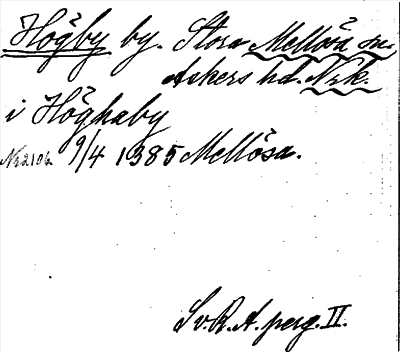 Högby by. Stora Mellösa sn.
Askers hd. Nrk.
i Höghaby
Nr2106. 9/4 1385 Mellösa.
Sv.R.A. perg. II.